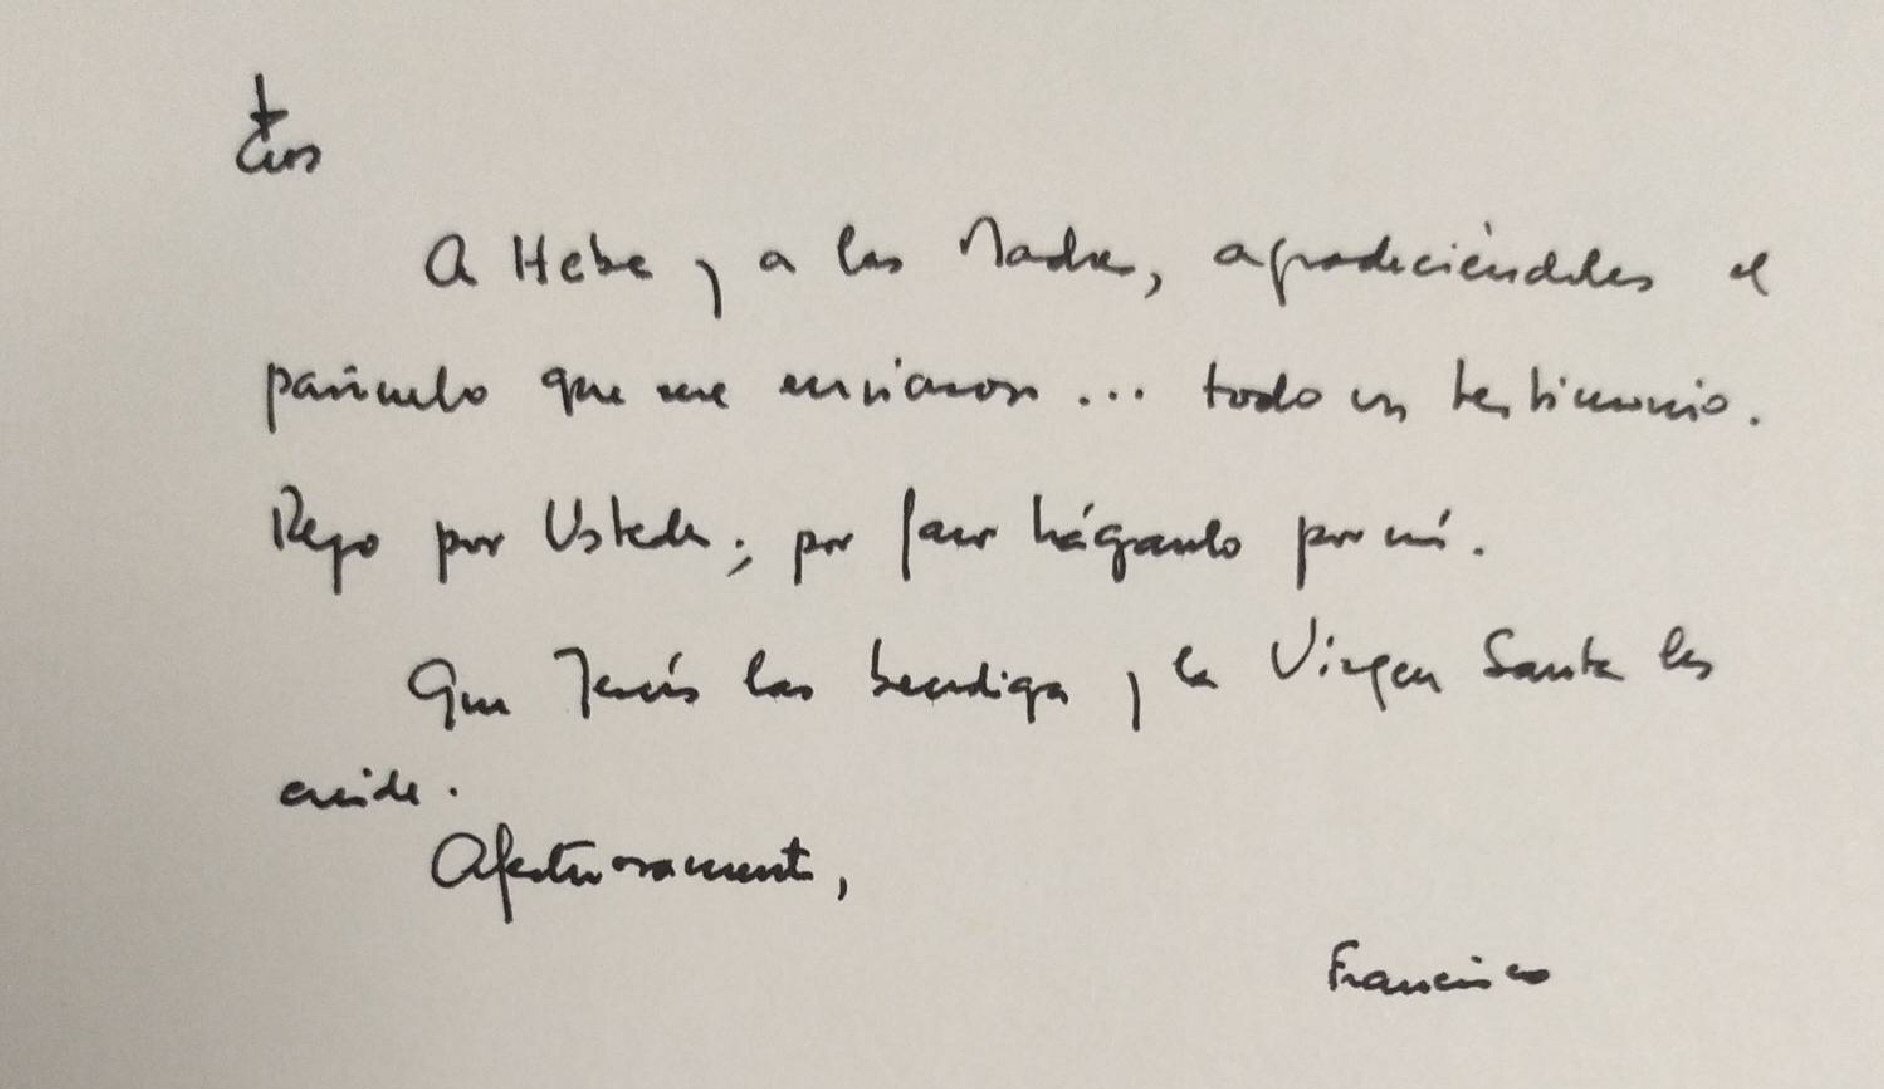 A Hebe y a las Madres, agradeciéndoles el
pañuelo que me enviaron... todo un testimonio.
Rezo por Ustedes; por favor háganlo por mí.
Que Jesús las bendiga y la Virgen Santa las
cuide.
Afectuosamente,
Francisco